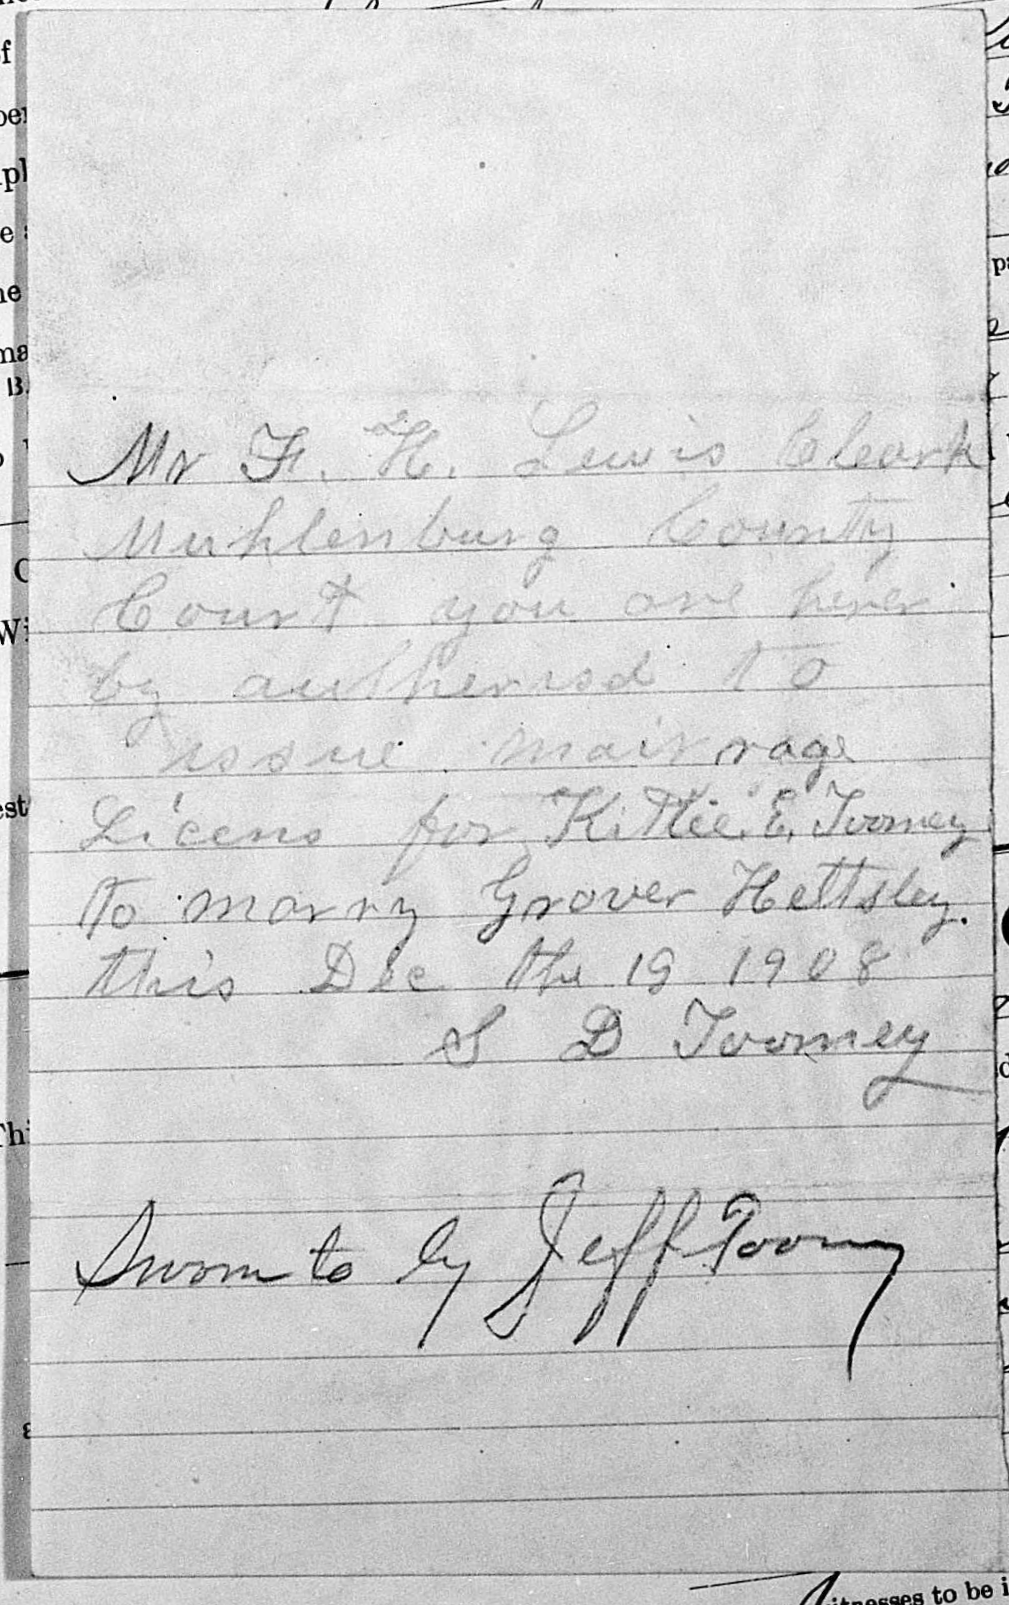 Mr F. H. Lewis Cleark
Muhlenburg County
Court you are here
by autherisd to
issue mair rage
Licens for Kittie E, Toomey
To marry Grover Heltsley.
this Dec the 19 1908
S D Toomey
Sworn to by Jeff Toomy
itnesses to be i